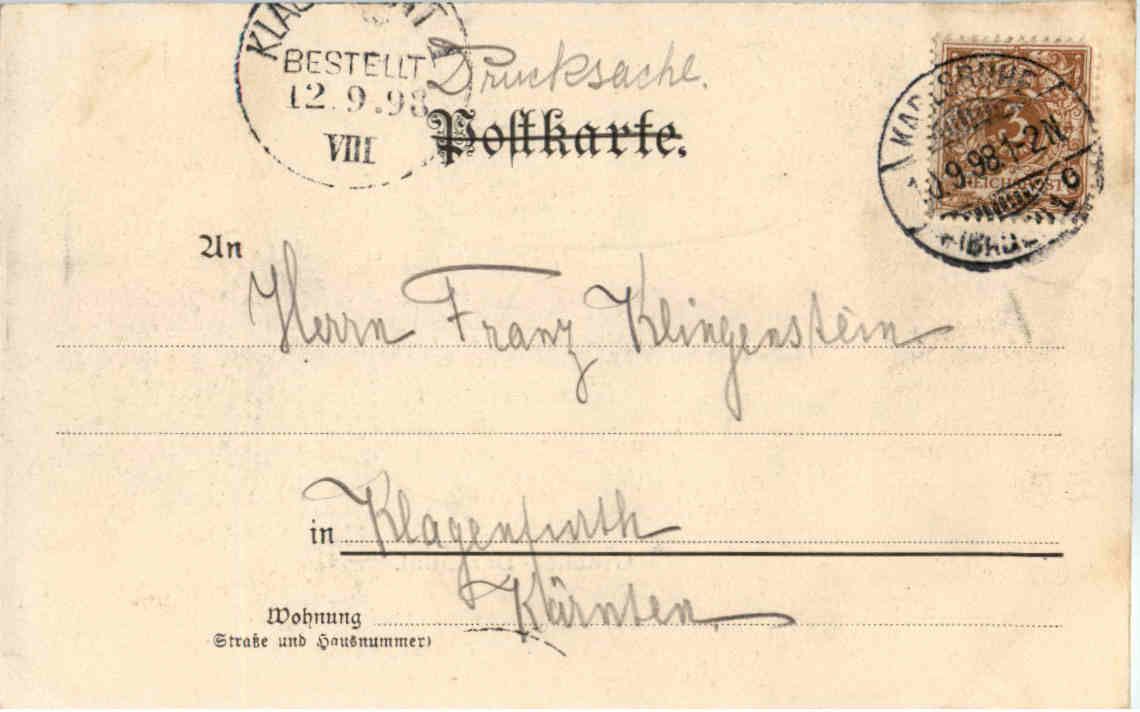 BESTELLT
12.9.98
VIII
Drucksache.
Postkarte.
KARLSRUHE
9.98.1-2N.
3
An
Herrn Franz Klingenstein
in Klagenfurth
Kärnten.
Wohnung
(Straße und Hausnummer)